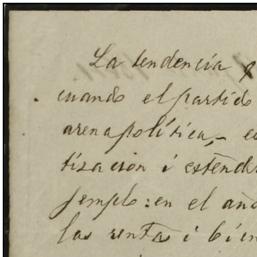 La tendencia
cuando el partido
arena política, –
tización i estend
jemplo: en el año
las renta i bien